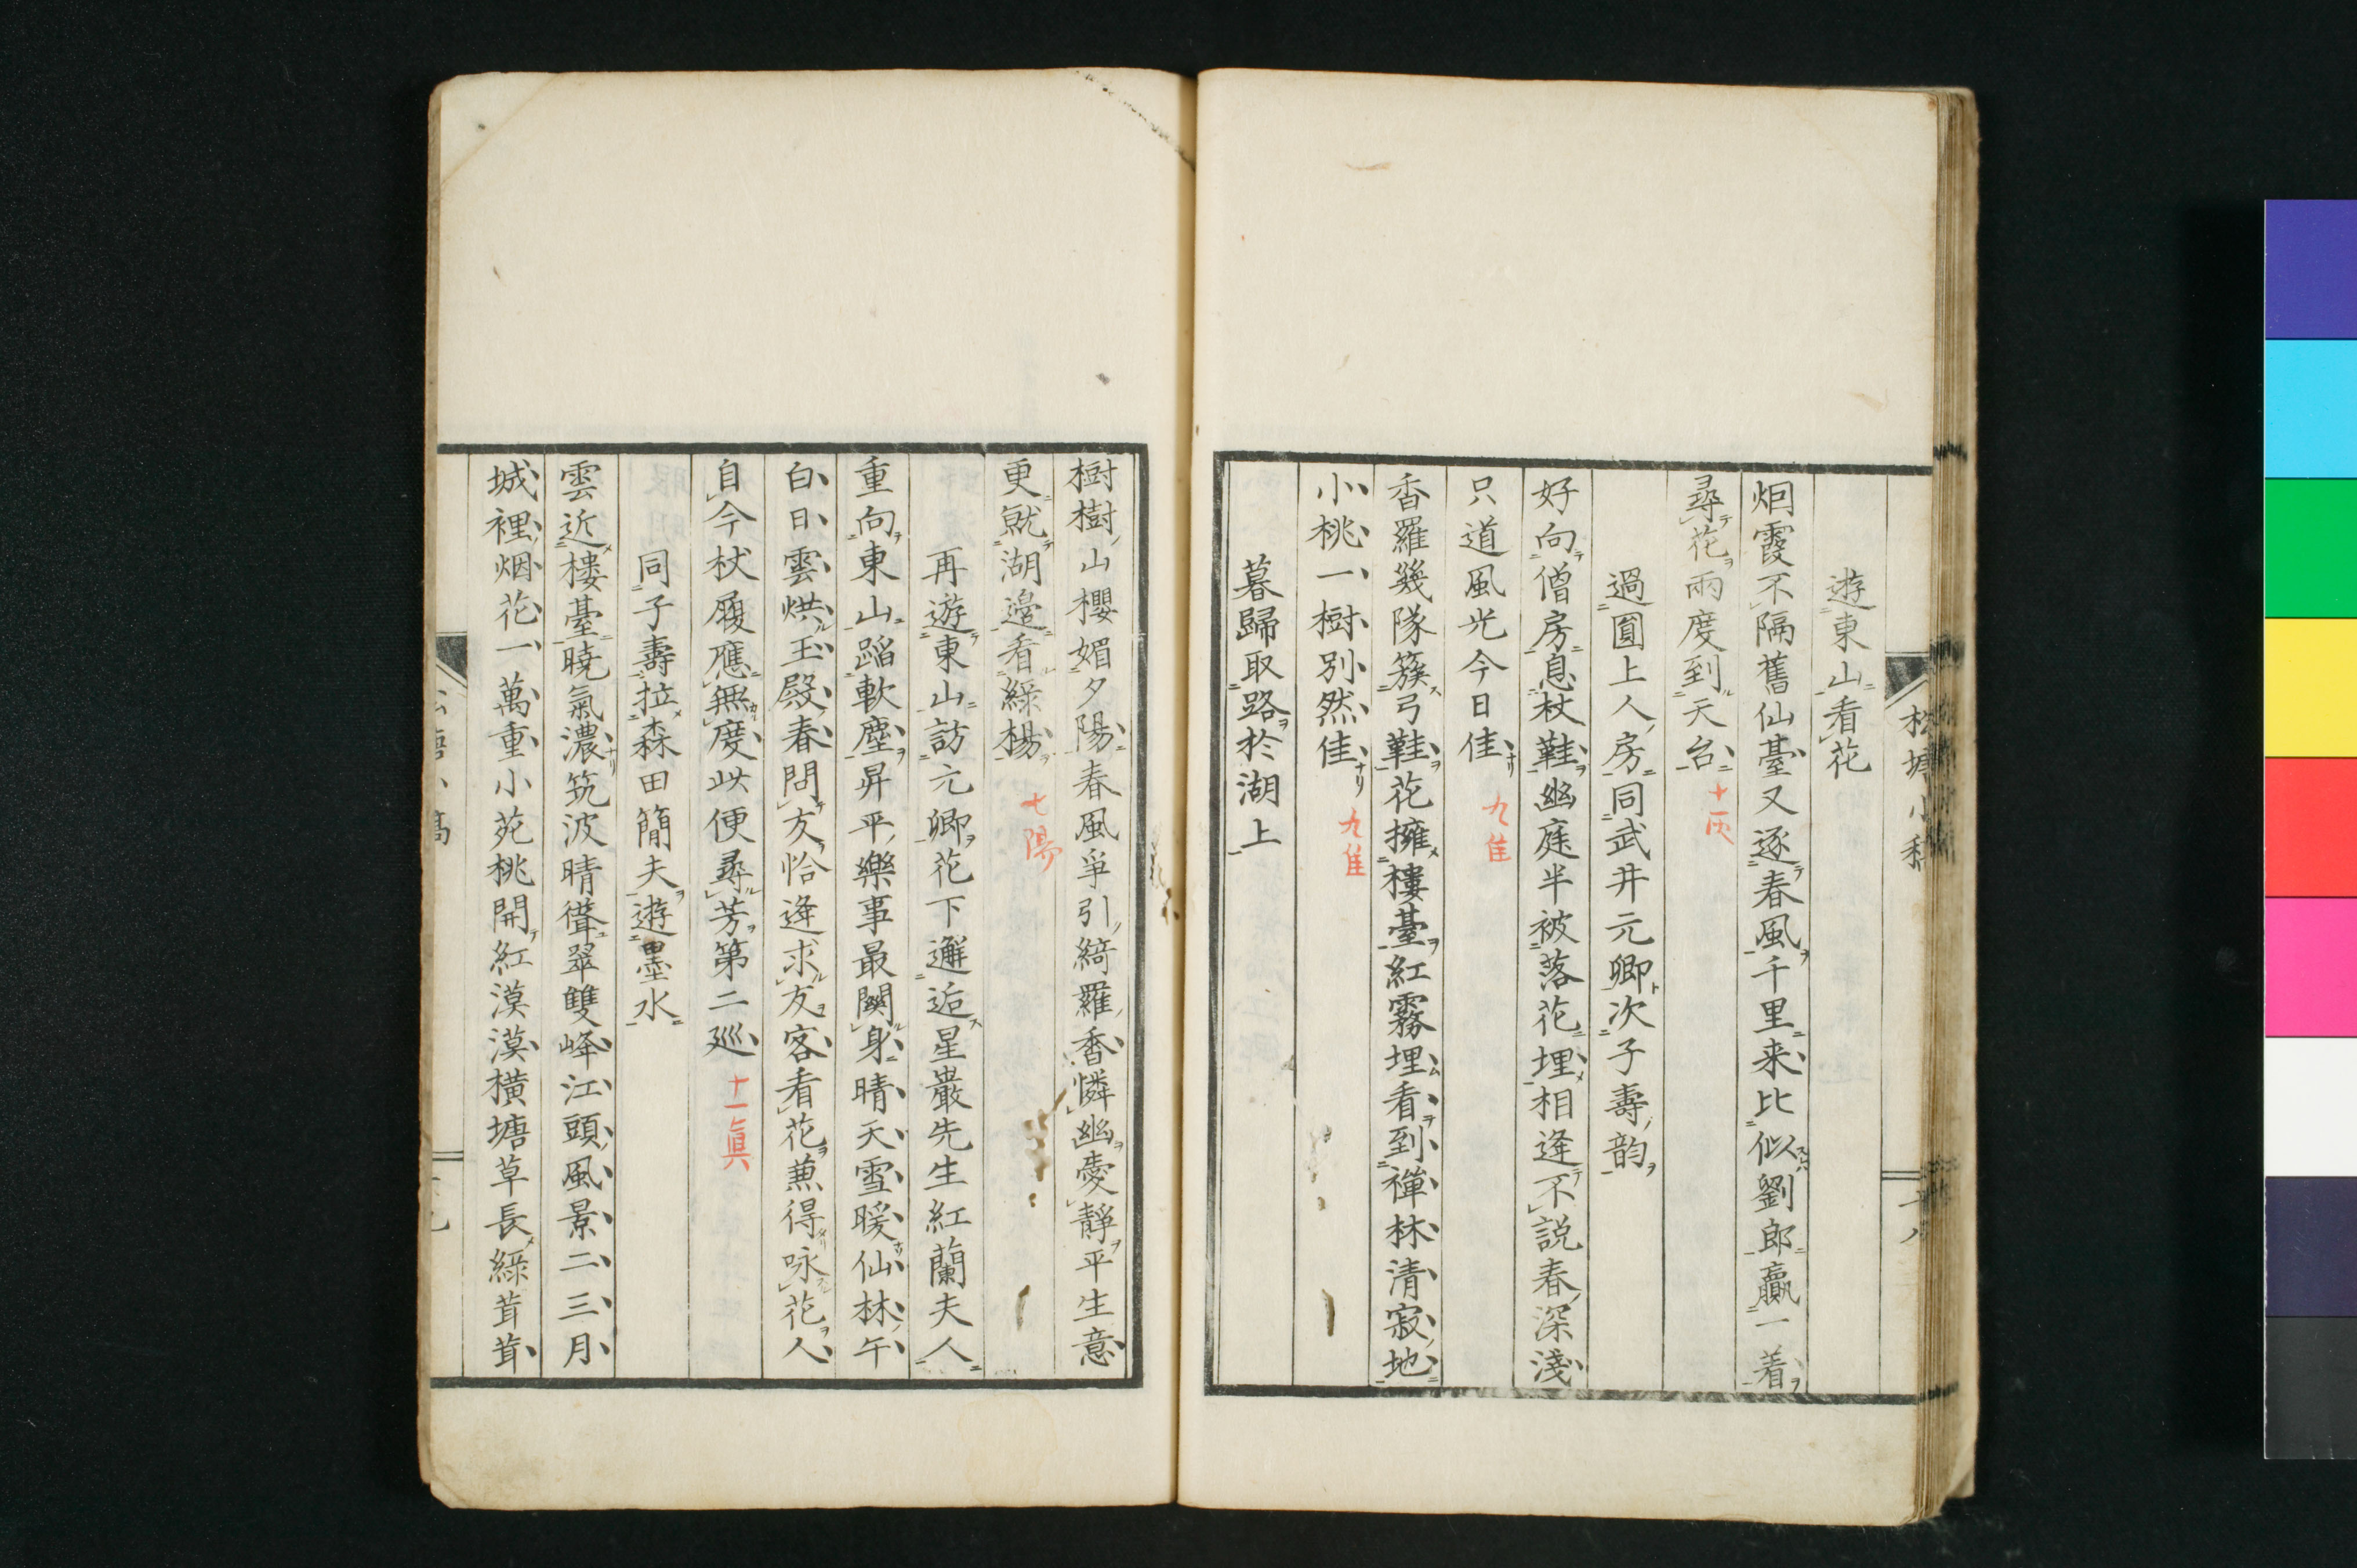 遊東山看花
烟霞不隔舊仙臺又逐春風千里来比似劉郎贏一着
尋花兩度到天台 十灰
過圓上人房同武井元卿次子壽韵
好向僧房息杖鞋幽庭半被落花埋相逢不説春深淺
只道風光今日佳 九佳
香羅幾隊簇弓鞋花擁樓臺紅霧埋看到禪林清寂地
小桃一樹別然佳 九佳
暮歸取路於湖上
樹樹山櫻媚夕陽春風爭引綺羅香憐幽愛靜平生意
更就湖邉看綠楊 七陽
再遊東山訪元卿花下邂逅星巖先生紅蘭夫人
重向東山蹈軟塵昇平樂事最関身晴天雪暖仙林午
白日雲烘玉殿春問友恰逢求友客看花兼得咏花人
自今杖履應無度此便尋芳第二巡 十一眞
同子壽拉森田簡夫遊墨水
雲近樓臺曉氣濃筑波晴聳翠雙峰江頭風景二三月
城裡烟花一萬重小苑桃開紅漠漠橫塘草長綠茸茸